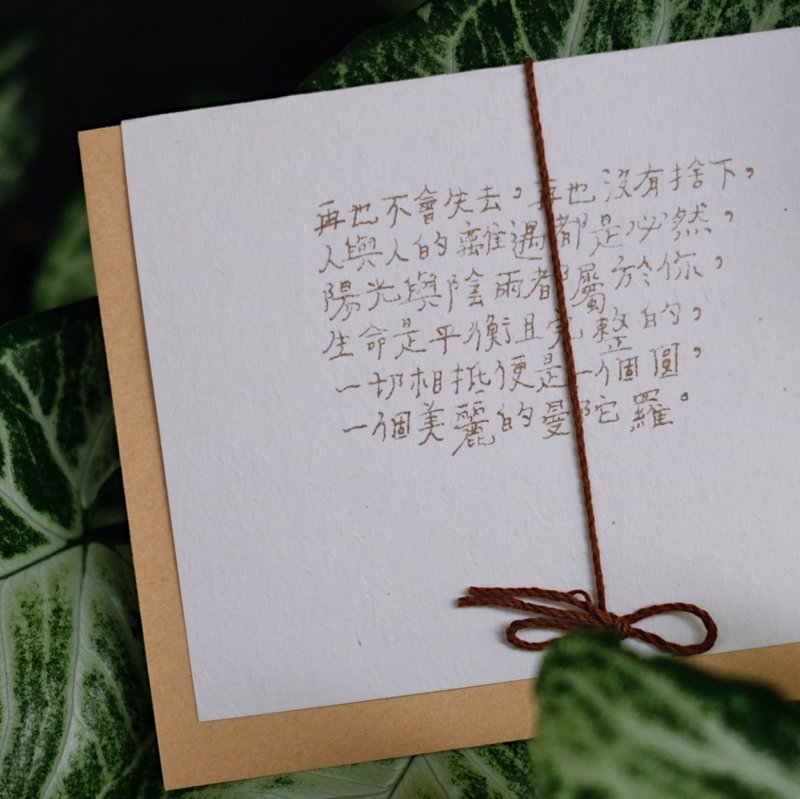 再也不會失去，再也沒有捨下，
人與人的離遇都是必然，
陽光與陰雨都屬於你，
生命是平衡且完整的，
一切相抵便是一個圓，
一個美麗的曼陀羅。